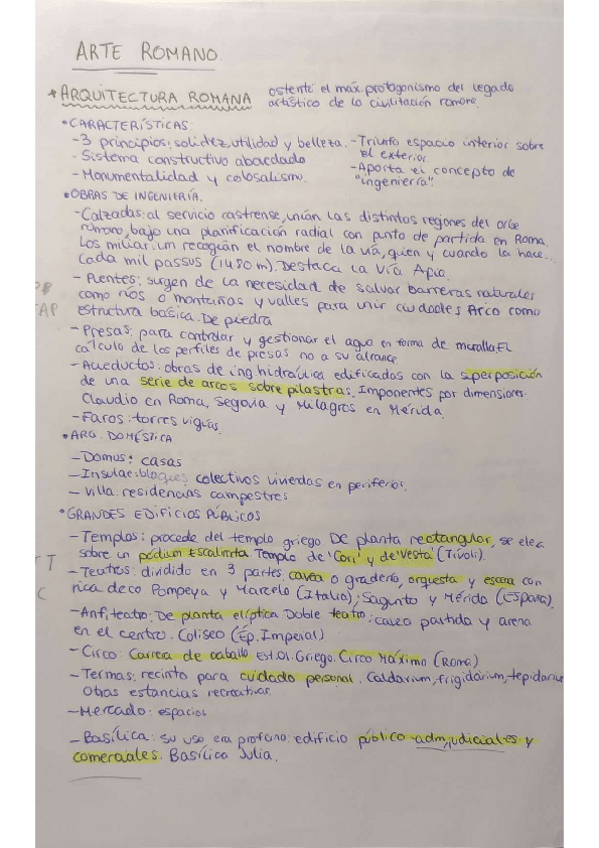 ARTE ROMANO
* ARQUITECTURA ROMANA ostentó el máx. protagonismo del legado
artístico de la civilización romana.
• CARACTERÍSTICAS:
- 3 principios: solidez, utilidad y belleza.
- Sistema constructivo abovedado
- Monumentalidad y colosalismo.
- Triunfo espacio interior sobre
el exterior.
- Aporta el concepto de
"ingeniería".
• OBRAS DE INGENIERÍA.
- Calzadas: al servicio castrense, unían las distintos regiones del orbe
romano, bajo una planificación radial con punto de partida en Roma.
Los miliarium recogían el nombre de la vía, quien y cuando la hace...
Cada mil passus (1480 m). Destaca la Vía Apia.
- Puentes: surgen de la necesidad de salvar barreras naturales
como ríos o montañas y valles para unir ciudades Arco como
estructura básica. De piedra
- Presas: para controlar y gestionar el agua en forma de muralla. El
cálculo de los perfiles de presas no a su alcance
- Acueductos: obras de ing. hidraúlica edificados con la superposición
de una serie de arcos sobre pilastras. Imponentes por dimensiones.
Claudio en Roma, Segovia y Milagros en Mérida.
- Faros: torres vigías.
• ARQ. DOMÉSTICA
- Domus: casas
- Insulae: bloques colectivos viviendas en periferias.
- Villa: residencias campestres
• GRANDES EDIFICIOS PÚBLICOS
- Templos: procede del templo griego De planta rectangular, se eleva
sobre un pódium Escalinata. Templo de 'Cori' y de 'Vesta' (Tívoli).
- Teatros: dividido en 3 partes: cavea o graderío, orquesta y escena con
rica deco Pompeya y Marcelo (Italia); Sagunto y Mérida (España).
- Anfiteatro: De planta elíptica Doble teatro: cavea partida y arena
en el centro. Coliseo (Ép. Imperial)
- Circo: Carrera de caballo Est. Ol. Griego. Circo Máximo (Roma)
- Termas: recinto para cuidado personal. Caldarium, frigidarium, tepidarium
Otras estancias recreativas.
- Mercado: espacios
- Basílica: su uso era profano: edificio público-adm, judiciales y
comerciales. Basílica Julia.